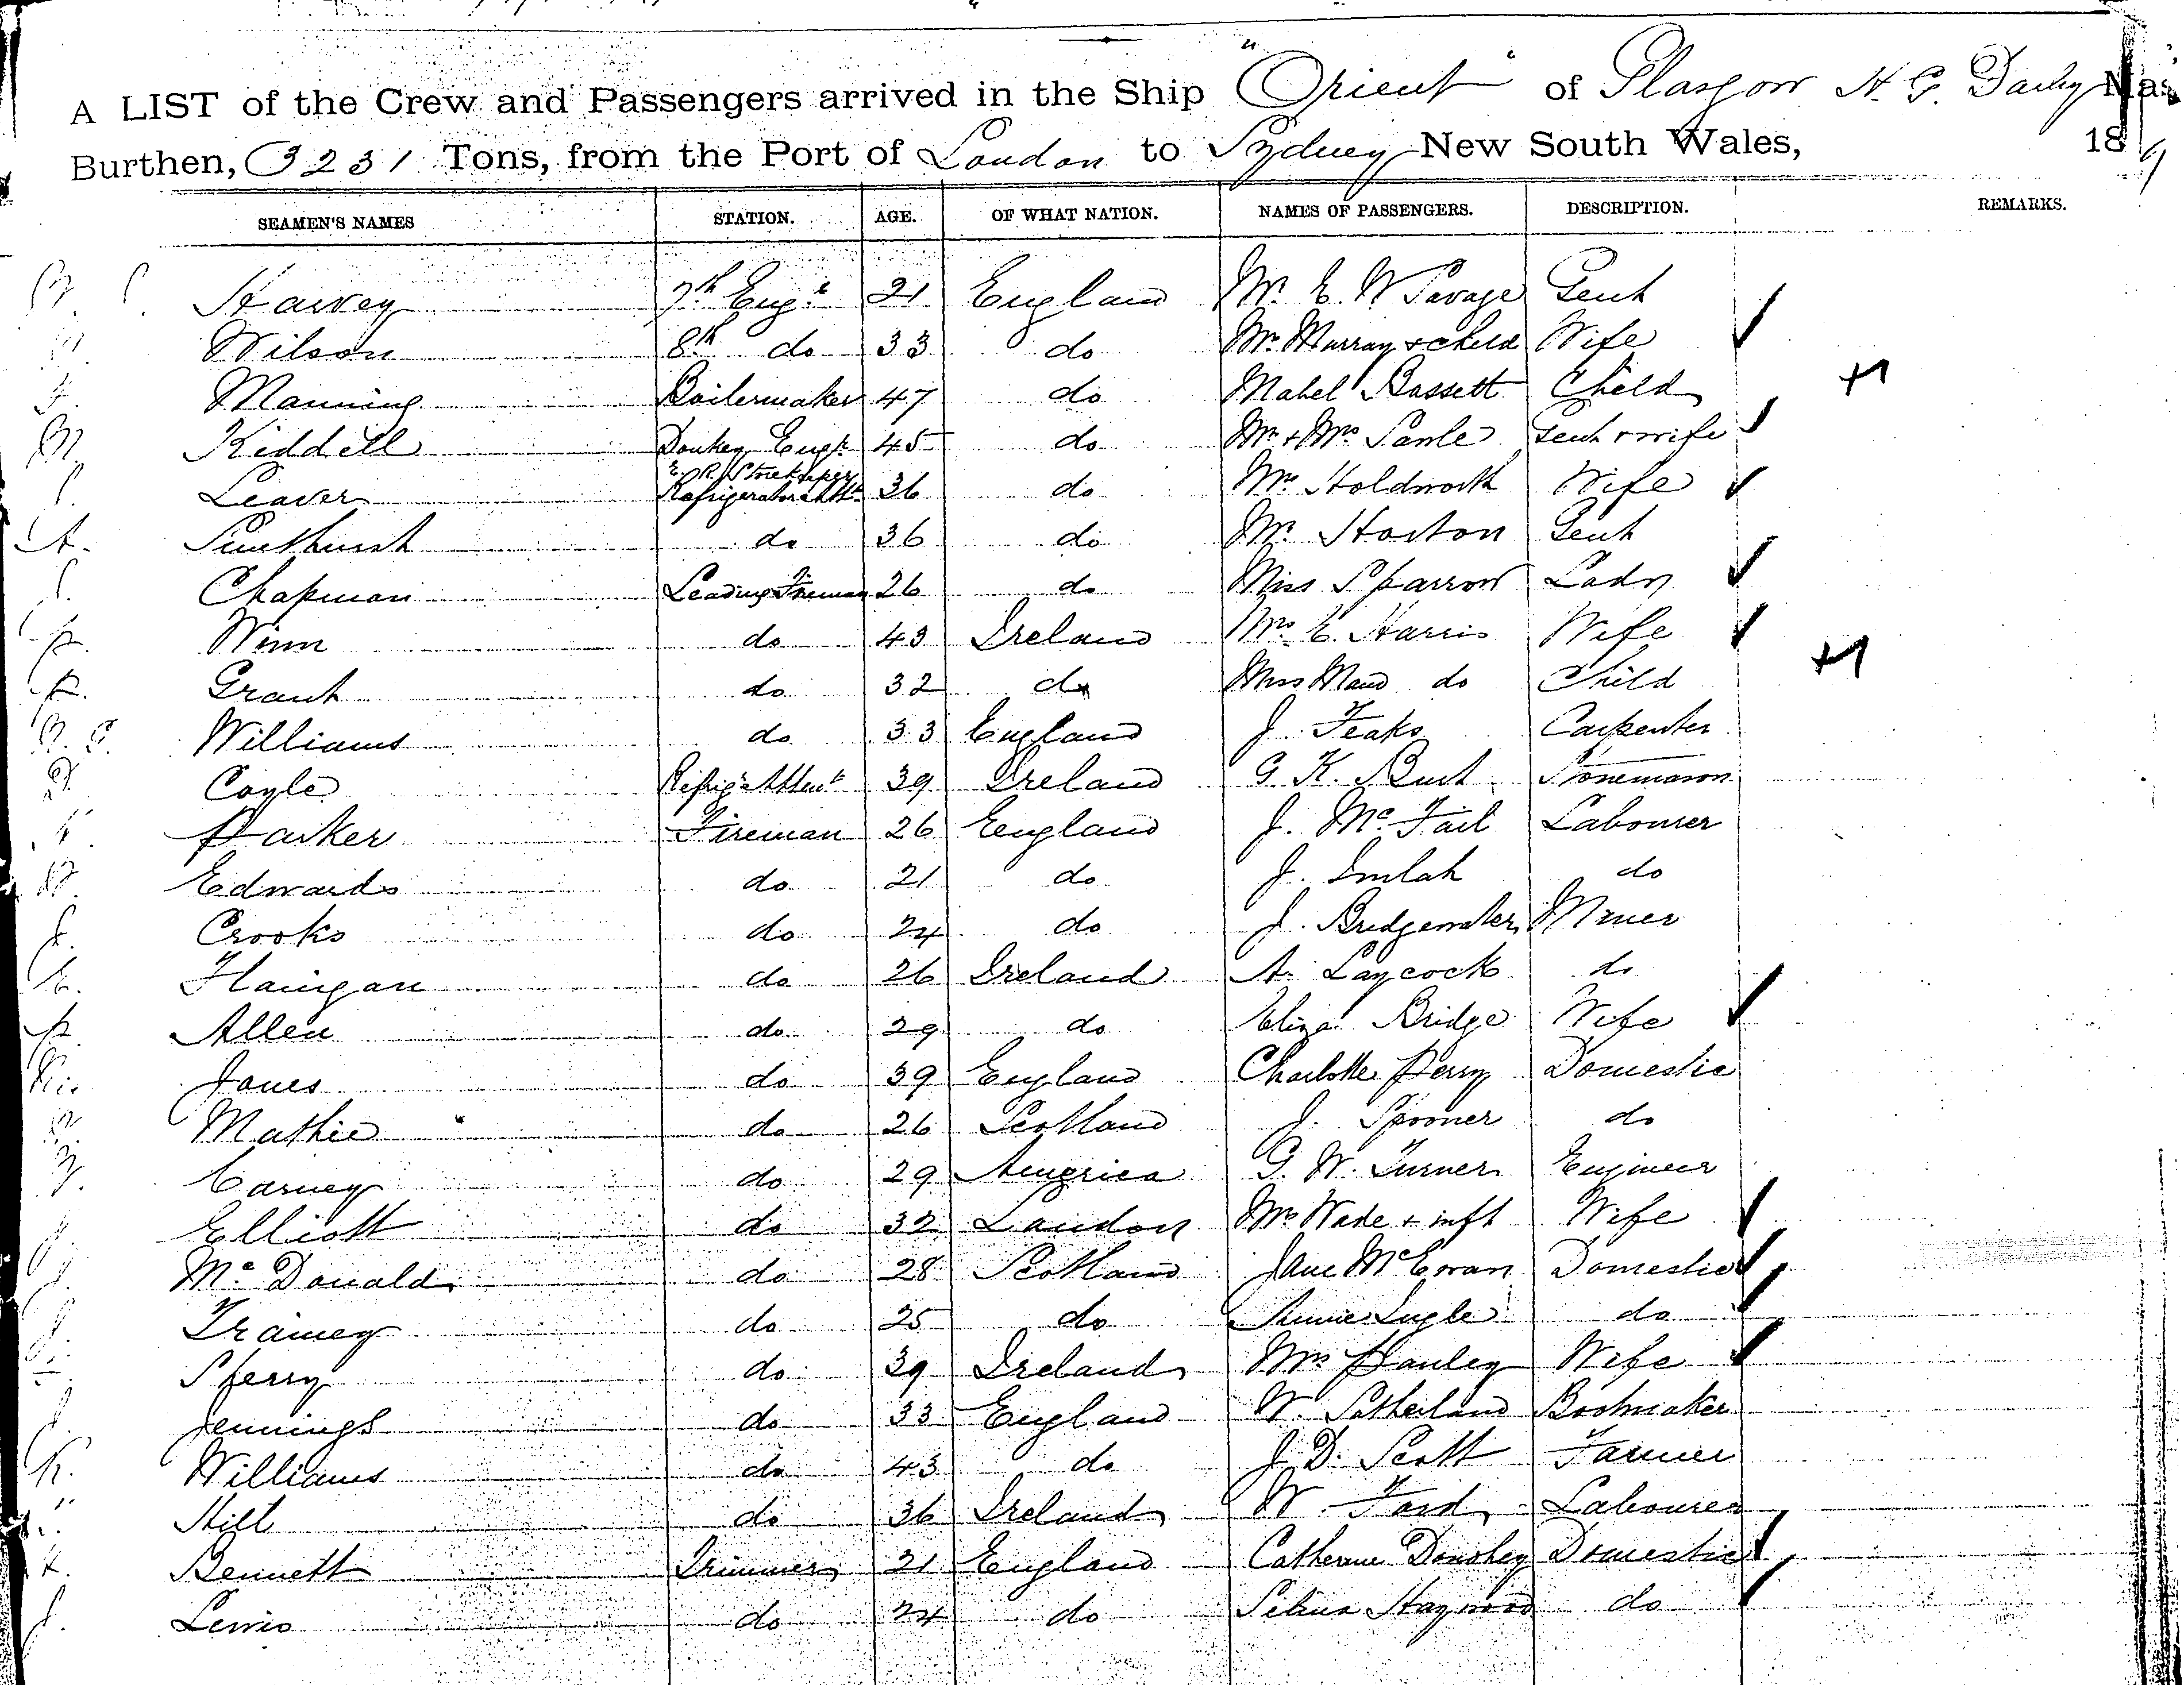 A LIST of the Crew and Passengers arrived in the Ship "Orient" of Glasgow H. G.
Burthen, 3231 Tons, from the Port of London to Sydney New South Wales, 18
SEAMEN'S NAMES STATION. AGE. OF WHAT NATION. NAMES OF PASSENGERS. DESCRIPTION. REMARKS.
Harvey 7th Engr 21 England Mr. E. W Savage Gent
Wilson 8th do 33 do Mrs Murray + child Wife
Manning Boilermaker 47 do Mabel Bassett Child
Kiddell Donkey Engr 45 do Mr + Mrs Gent + wife
Leaver E. R. Storekeeper Refrigerator 36 do Mrs Holdworth Wife
do 36 do Mr Horton Gent
Chapman Leading Fireman 26 do Miss Sparrow Lady
Winn do 43 Ireland Mrs E. Harris Wife
Grant do 32 do Miss Maud do Child
Williams do 33 England J. Feaks Carpenter
Coyle 39 Ireland G. K. Stonemason
Parker Fireman 26 England J. Mc Labourer
Edwards do 21 do J. Imlah do
Crooks do 24 do J. Bridgewater Miner
Flanigan do 26 Ireland A. Laycock do
Allen do 29 do Eliza Bridge Wife
Jones do 39 England Charlotte Perry Domestic
Mathie do 26 Scotland J. Spooner do
Carney do 29 America G. W. Turner Engineer
Elliott do 32 London Mrs Wade + inft Wife
Mc Donald do 28 Scotland Jane McEwan Domestic
Trainey do 25 do Annie do
Sperry do 39 Ireland Mrs Wife
Jennings do 33 England W. Bootmaker
Williams do 43 do J. D. Scott Farmer
Hill do 36 Ireland W. Ford Labourer
Bennett Trimmer 21 England Catherine Donohey Domestic
Lewis do 24 do Selina Haywood do